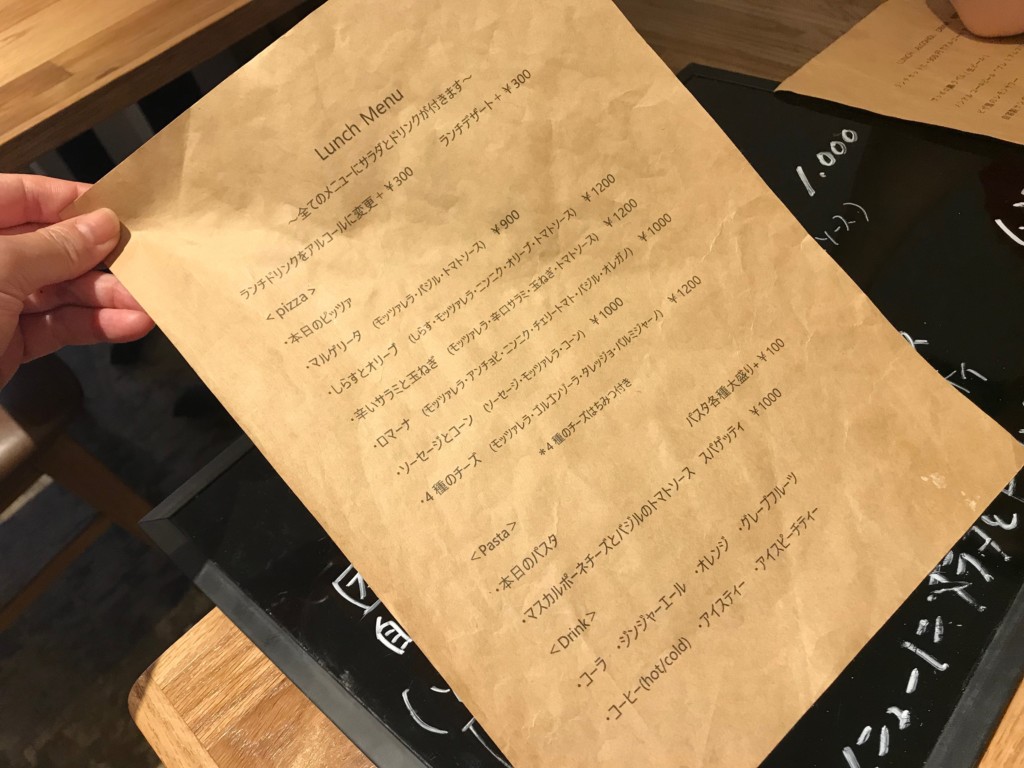 Lunch Menu
～全てのメニューにサラダとドリンクが付きます～
ランチドリンクをアルコールに変更+￥300 ランチデザート+￥300
<pizza>
・本日のピッツァ
・マルゲリータ (モッツァレラ・バジル・トマトソース) ￥900
・しらすとオリーブ (しらす・モッツァレラ・ニンニク・オリーブ・トマトソース) ￥1200
・辛いサラミと玉ねぎ (モッツァレラ・辛口サラミ・玉ねぎ・トマトソース) ￥1200
・ロマーナ (モッツァレラ・アンチョビ・ニンニク・チェリートマト・バジル・オレガノ) ￥1000
・ソーセージとコーン (ソーセージ・モッツァレラ・コーン) ￥1000
・4種のチーズ (モッツァレラ・ゴルゴンゾーラ・タレッジョ・パルミジャーノ) ￥1200
*4種のチーズはちみつ付き
<Pasta> パスタ各種大盛り+￥100
・本日のパスタ
・マスカルポーネチーズとバジルのトマトソース スパゲッティ ￥1000
<Drink>
・コーラ ・ジンジャーエール ・オレンジ ・グレープフルーツ
・コーヒー(hot/cold) ・アイスティー ・アイスピーチティー
1.000
ソース)